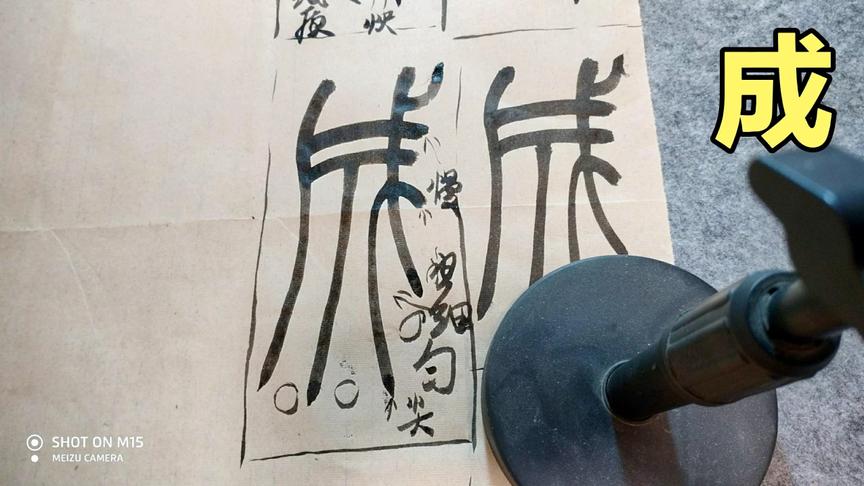 成
快
成 成
慢
细
匀
尖
SHOT ON M15
MEIZU CAMERA